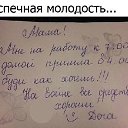 спечная молодость...
Мама!
Мне на работу к 7:00
домой пришла в 4.
буди как хочешь!!!
На войне все средства
хороши.
Дочь